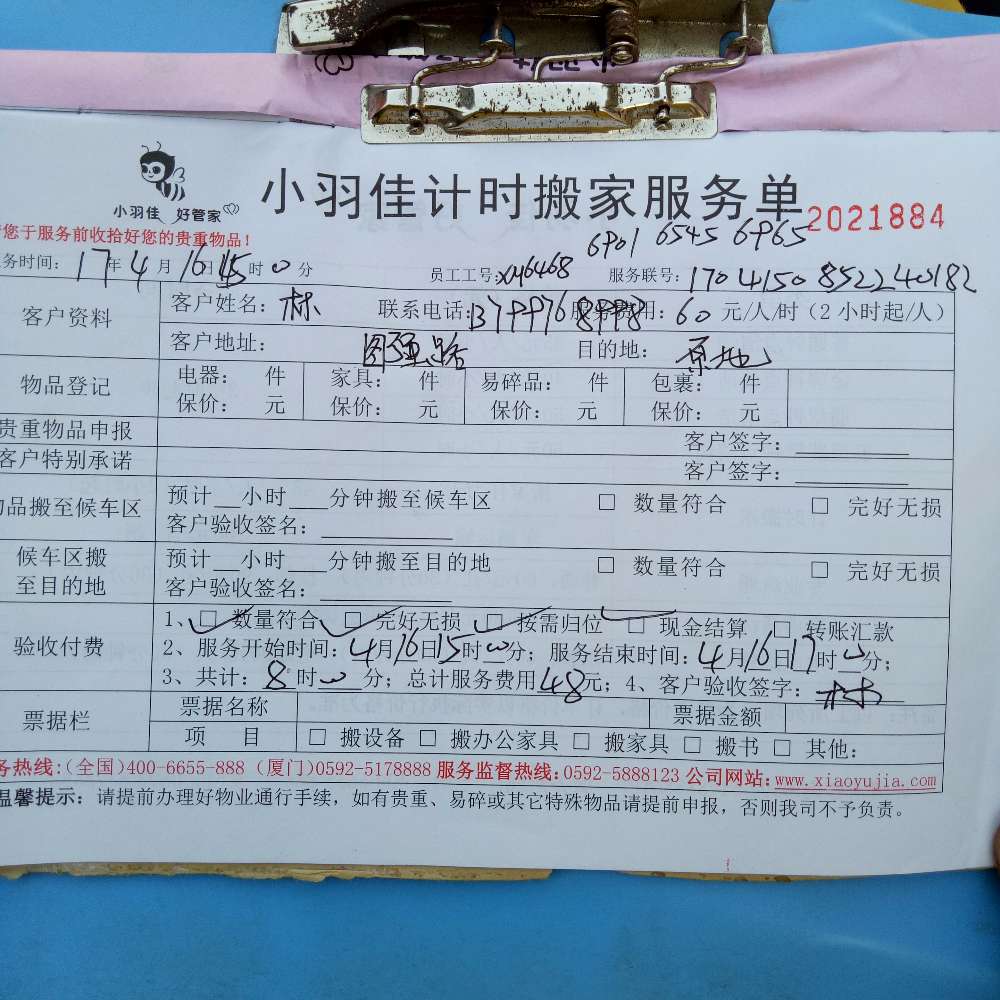 小羽佳 好管家
小羽佳计时搬家服务单
2021884
您于服务前收拾好您的贵重物品！
6901 6545 6965
务时间：17年4月16日15时00分 员工工号：XM6468 服务联号：1704150852240182
客户资料
客户姓名：林 联系电话：13799768998 服务费用：60元/人/时（2小时起/人）
客户地址：图强路 目的地：原地
物品登记
电器： 件 家具： 件 易碎品： 件 包裹： 件
保价： 元 保价： 元 保价： 元 保价： 元
贵重物品申报 客户签字：
客户特别承诺 客户签字：
物品搬至候车区
预计__小时___分钟搬至候车区 □ 数量符合 □ 完好无损
客户验收签名：
候车区搬
至目的地
预计__小时___分钟搬至目的地 □ 数量符合 □ 完好无损
客户验收签名：
验收付费
1、□ 数量符合 □ 完好无损 □ 按需归位 □ 现金结算 □ 转账汇款
2、服务开始时间：4月16日15时00分；服务结束时间：4月16日17时00分；
3、共计：8时00分；总计服务费用48元；4、客户验收签字：林
票据栏
票据名称 票据金额
项 目 □ 搬设备 □ 搬办公家具 □ 搬家具 □ 搬书 □ 其他：
务热线：(全国)400-6655-888 (厦门)0592-5178888 服务监督热线：0592-5888123 公司网站：www.xiaoyujia.com
温馨提示：请提前办理好物业通行手续，如有贵重、易碎或其它特殊物品请提前申报，否则我司不予负责。